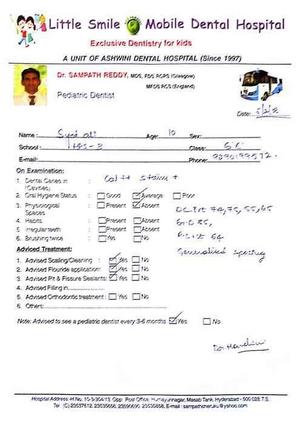 Little Smile Mobile Dental Hospital
Exclusive Dentistry for kids
A UNIT OF ASHWINI DENTAL HOSPITAL (Since 1997)
Dr. SAMPATH REDDY, MDS, FDS RCPS (Glasgow)
MFDS RCS (England)
Pediatric Dentist
Date:
Name: Syed Ali Age: 10 Sex:
School: Class:
E-mail: Phone:
On Examination:
1. Dental Caries in (Cavities)
2. Oral Hygiene Status Good Average Poor
3. Physiological Spaces Present Absent
4. Habits Present Absent
5. Irregular teeth Present Absent
6. Brushing twice Yes No
Generalised spacing
Adviced Treatment:
1. Advised Scaling/Cleaning: Yes No
2. Advised Flouride application: Yes No
3. Advised Pit & Fissure Sealants: Yes No
4. Advised Filling in
5. Advised Orthodontic treatment: Yes No
6. Others:
Note: Advised to see a pediatric dentist every 3-6 months Yes No
Hospital Address: Opp. Post Office, Humayunnagar, Masab Tank, Hyderabad - 500 028 T.S.